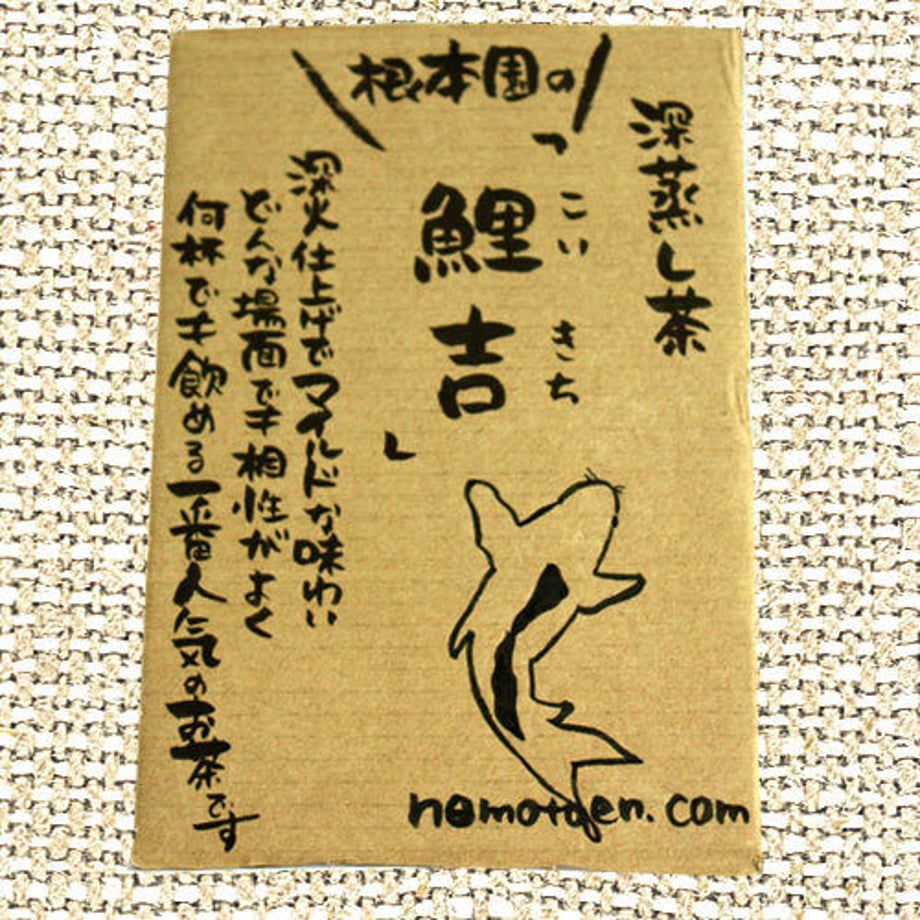 根本園の
深蒸し茶
「鯉吉」
こいきち
深火仕上げでマイルドな味わい
どんな場面でも相性がよく
何杯でも飲める一番人気のお茶です
nemotoen.com